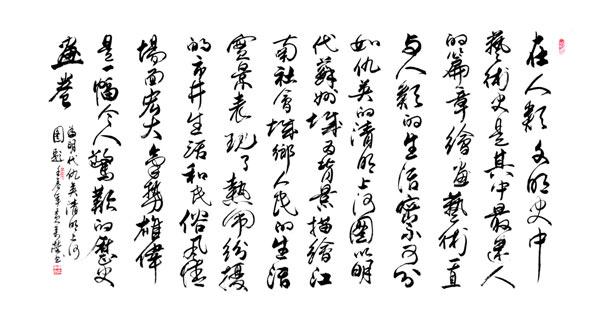 在人類文明史中
藝術史是其中最迷人
的篇章繪畫藝術一直
与人類的生活密不可分
如仇英的清明上河图以明
代蘇州城为背景描繪江
南社會城鄉人民的生活
實景表现了熱闹紛擾
的市井生活和民俗風情
場面宏大氣勢雄偉
是一幅令人驚歎的歷史
畫卷
为明代仇英清明上河
图題壬辰年